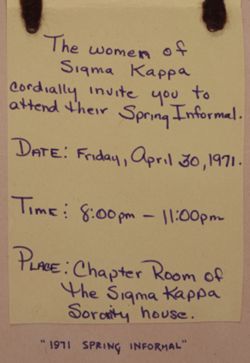 The women of
Sigma Kappa
cordially invite you to
attend their Spring Informal.
DATE: Friday, April 30, 1971.
TIME: 8:00pm - 11:00pm
PLACE: Chapter Room of
the Sigma Kappa
Sorority house.
"1971 SPRING INFORMAL"